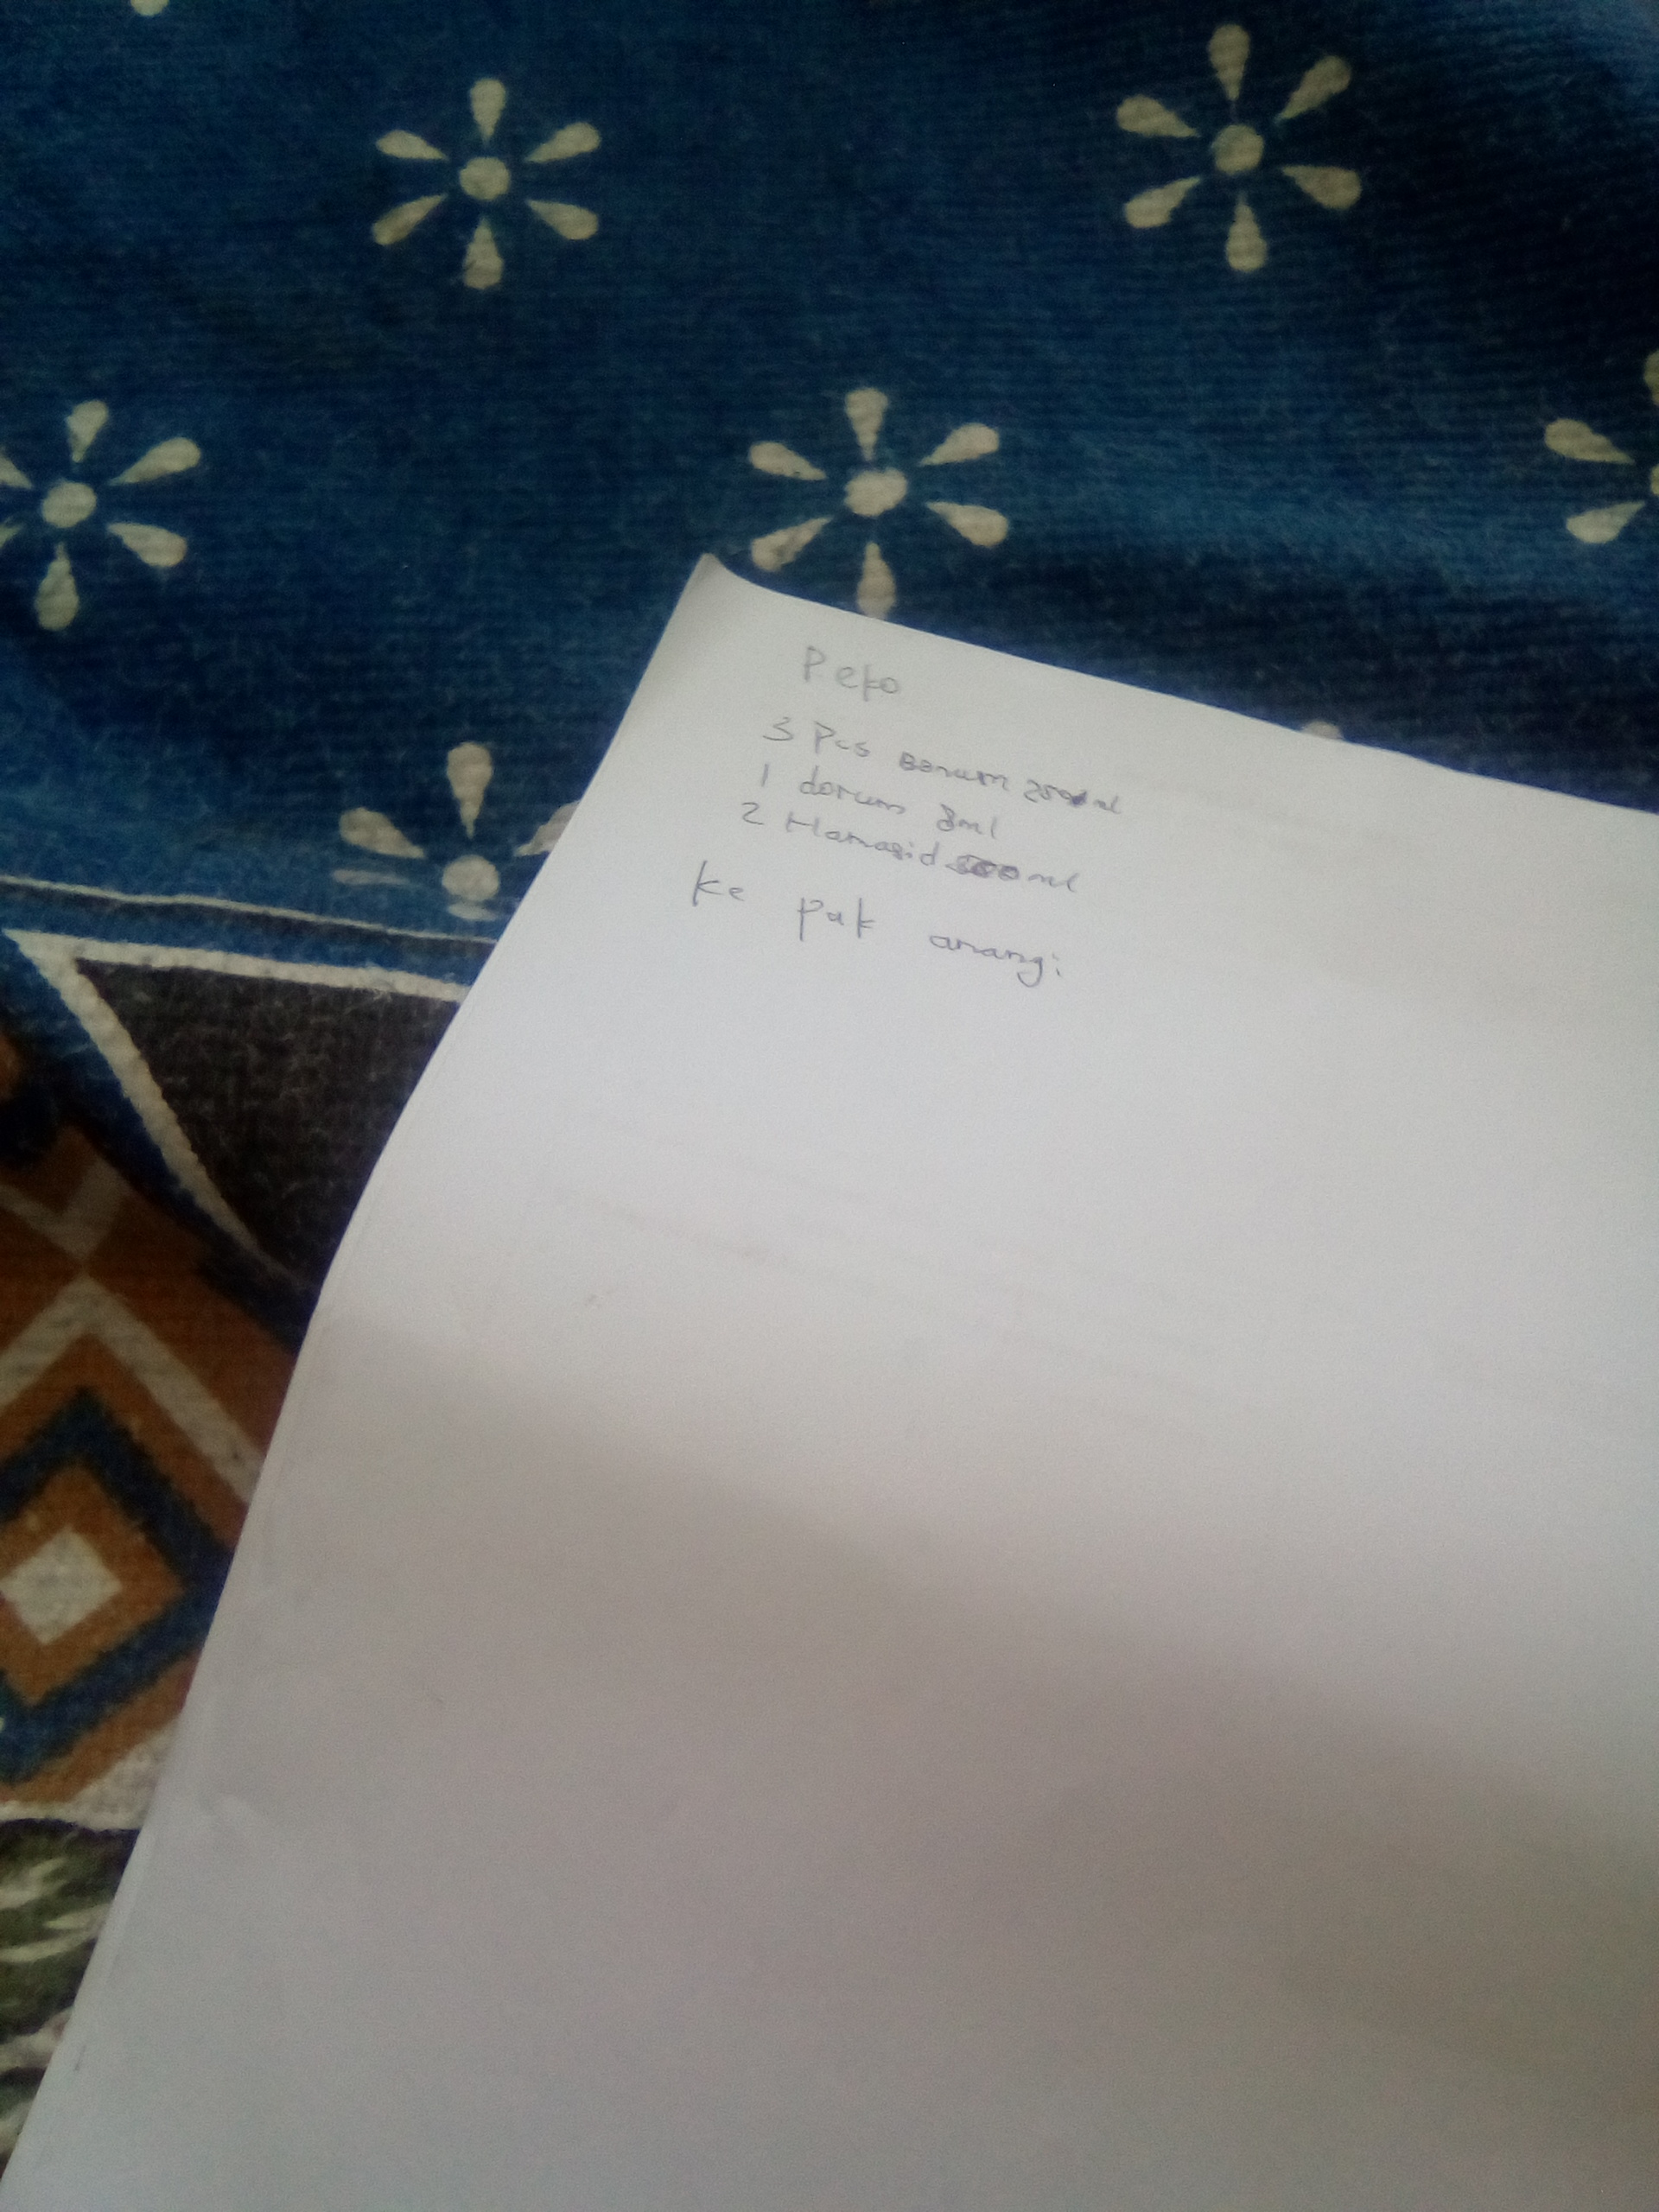 Peko
3 Pcs Banum 250 ml
1 dorum 8ml
2 Hamasid 500 ml
ke pak anang: